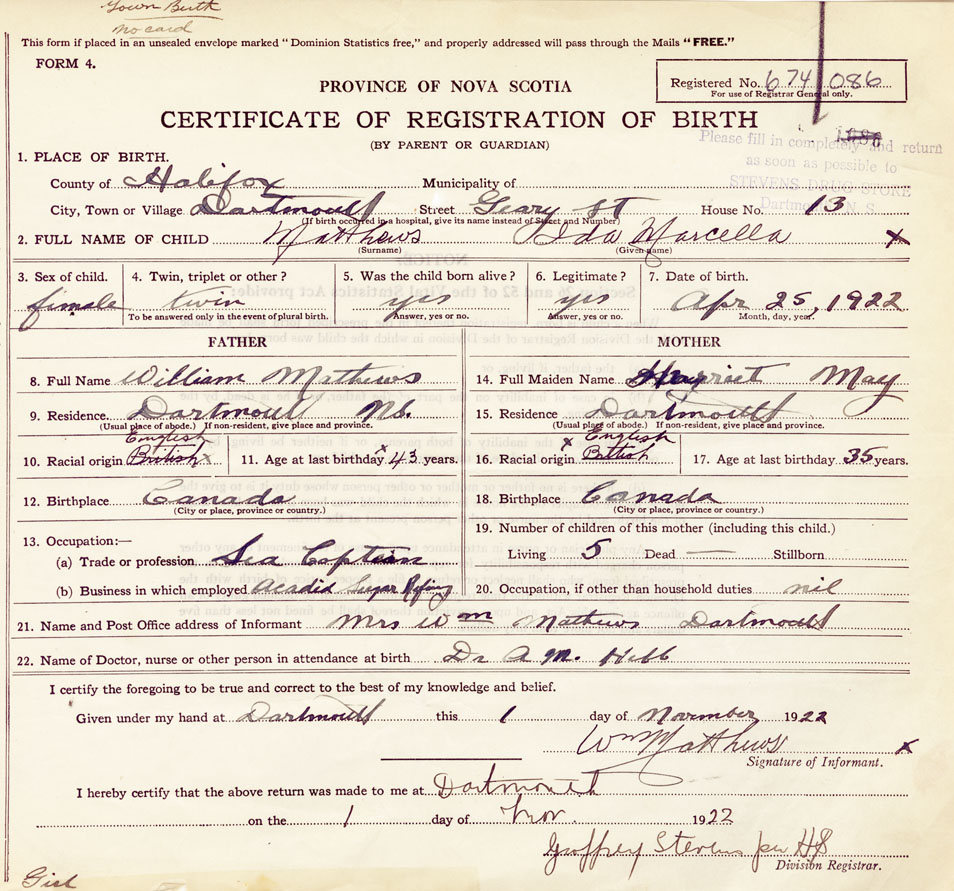 Town Birth
no card
This form if placed in an unsealed envelope marked "Dominion Statistics free," and properly addressed will pass through the Mails "FREE."
FORM 4.
PROVINCE OF NOVA SCOTIA
Registered No. 674 086
For use of Registrar General only.
CERTIFICATE OF REGISTRATION OF BIRTH
(BY PARENT OR GUARDIAN)
Please fill in completely and return
as soon as possible to
STEVENS DRUG STORE
Dartmouth N. S.
1. PLACE OF BIRTH.
County of Halifax Municipality of
City, Town or Village Dartmouth Street Geary St House No. 13
(If birth occurred in a hospital, give its name instead of Street and Number)
2. FULL NAME OF CHILD Matthews Ida Marcella x
(Surname) (Given name)
3. Sex of child. 4. Twin, triplet or other? 5. Was the child born alive? 6. Legitimate? 7. Date of birth.
female twin yes yes Apr 25, 1922
To be answered only in the event of plural birth. Answer, yes or no. Answer, yes or no. Month, day, year.
FATHER MOTHER
8. Full Name William Mathews 14. Full Maiden Name Harriet May
9. Residence. Dartmouth N.S. 15. Residence Dartmouth
(Usual place of abode.) If non-resident, give place and province. (Usual place of abode.) If non-resident, give place and province.
English x English
10. Racial origin British x 11. Age at last birthday x 43 years. 16. Racial origin British 17. Age at last birthday 35 years.
12. Birthplace Canada 18. Birthplace Canada
(City or place, province or country.) (City or place, province or country.)
13. Occupation:— 19. Number of children of this mother (including this child.)
(a) Trade or profession Sea Captain Living 5 Dead — Stillborn
(b) Business in which employed Acadia Sugar Refing 20. Occupation, if other than household duties nil
21. Name and Post Office address of Informant Mrs Wm Mathews Dartmouth
22. Name of Doctor, nurse or other person in attendance at birth Dr A. M. Hebb
I certify the foregoing to be true and correct to the best of my knowledge and belief.
Given under my hand at Dartmouth this 1 day of November 1922
Wm Matthews x
Signature of Informant.
I hereby certify that the above return was made to me at Dartmouth
on the 1 day of Nov 1922
Geoffrey Stevens per HS
Division Registrar.